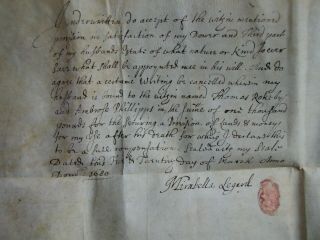 Underwritten do accept of the within mentioned
provision in satisfaction of my Dower and Third part
of my husbands Estate of what nature or Kind soever
save what shall be appoynted mee in his will And do
agree that a certaine Writing be cancelled wherein my
husband is bound to the within named Thomas Rokeby
and Ambrose Phillipps in the sume of one thousand
pounds for the secureing a Provision of lands & moneys
for my life after his death for which I declare this
to be a full compensation. Sealed with my Seale
Dated this the Twenty day of March Anno
1680
Mirabella Legard